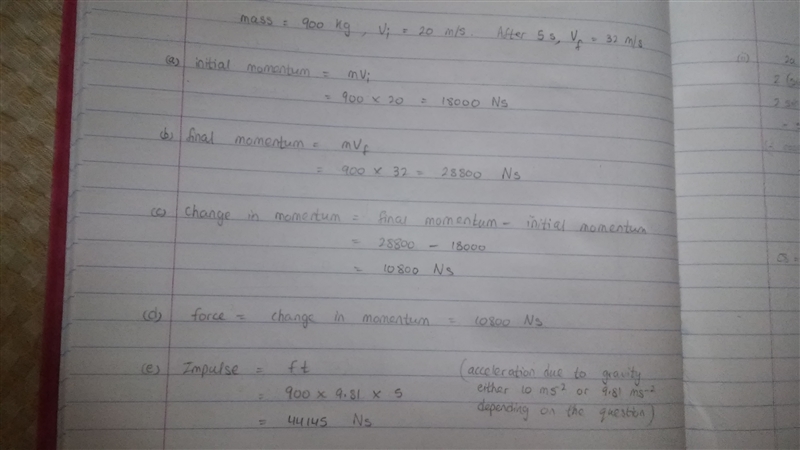 mass = 900 kg, Vi = 20 m/s. After 5 s, Vf = 32 m/s
(a) initial momentum = mVi
= 900 x 20 = 18000 Ns
(b) final momentum = mVf
= 900 x 32 = 28800 Ns
(c) Change in momentum = final momentum - initial momentum
= 28800 - 18000
= 10800 Ns
(d) force = change in momentum = 10800 Ns
(e) Impulse = ft
= 900 x 9.81 x 5
= 44145 Ns
(acceleration due to gravity
either 10 ms² or 9.81 ms⁻²
depending on the question)